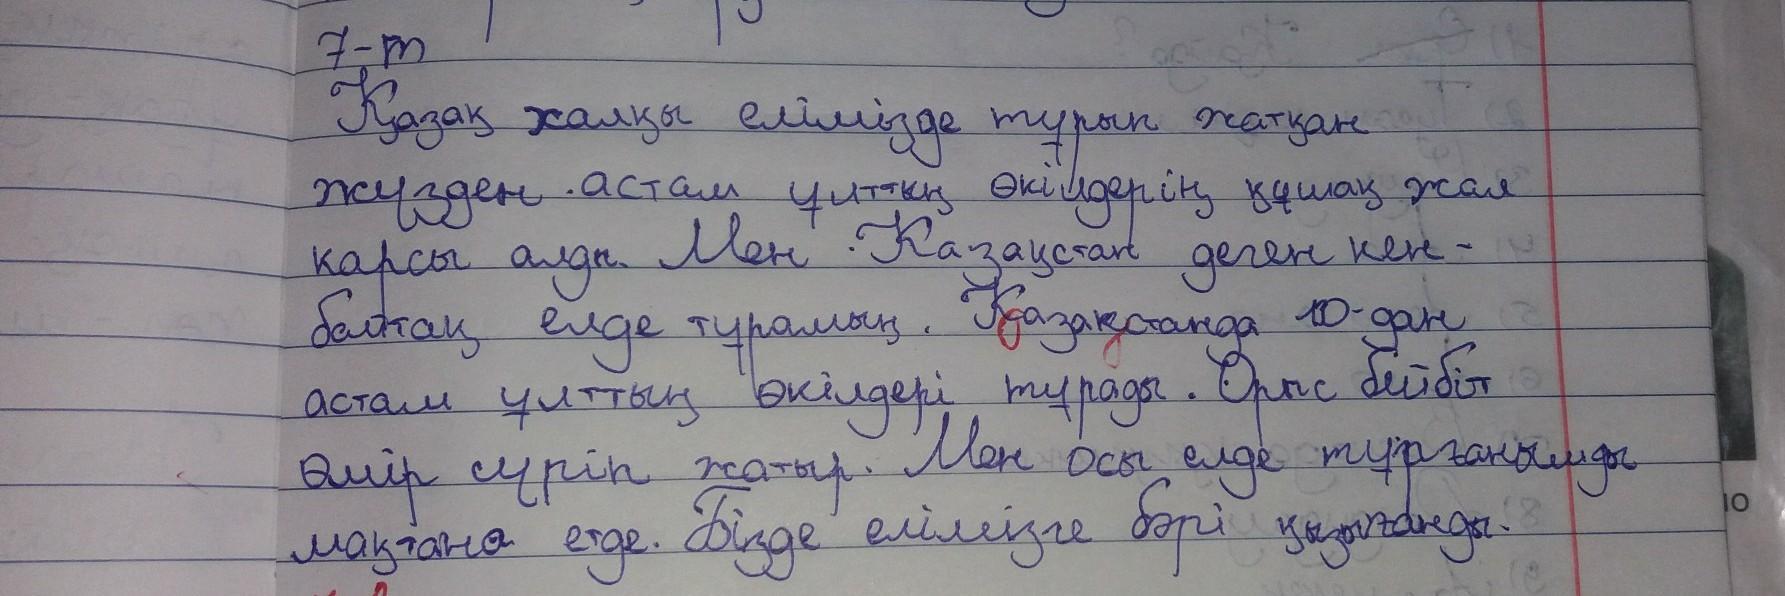 7-т
Қазақ халқы елімізде тұрып жатқан
жүзден астам ұлттың өкілдерің құшақ жая
карсы алды. Мен Казақстан деген кен-
байтақ елде тұрамың. Қазақстанда 10-дан
астам ұлттың өкілдері тұрады. бейбіт
өмір сүріп жатыр. Мен осы елде тұрғанымды
мақтана етде. Бізде елімізге бәрі қызығанды.